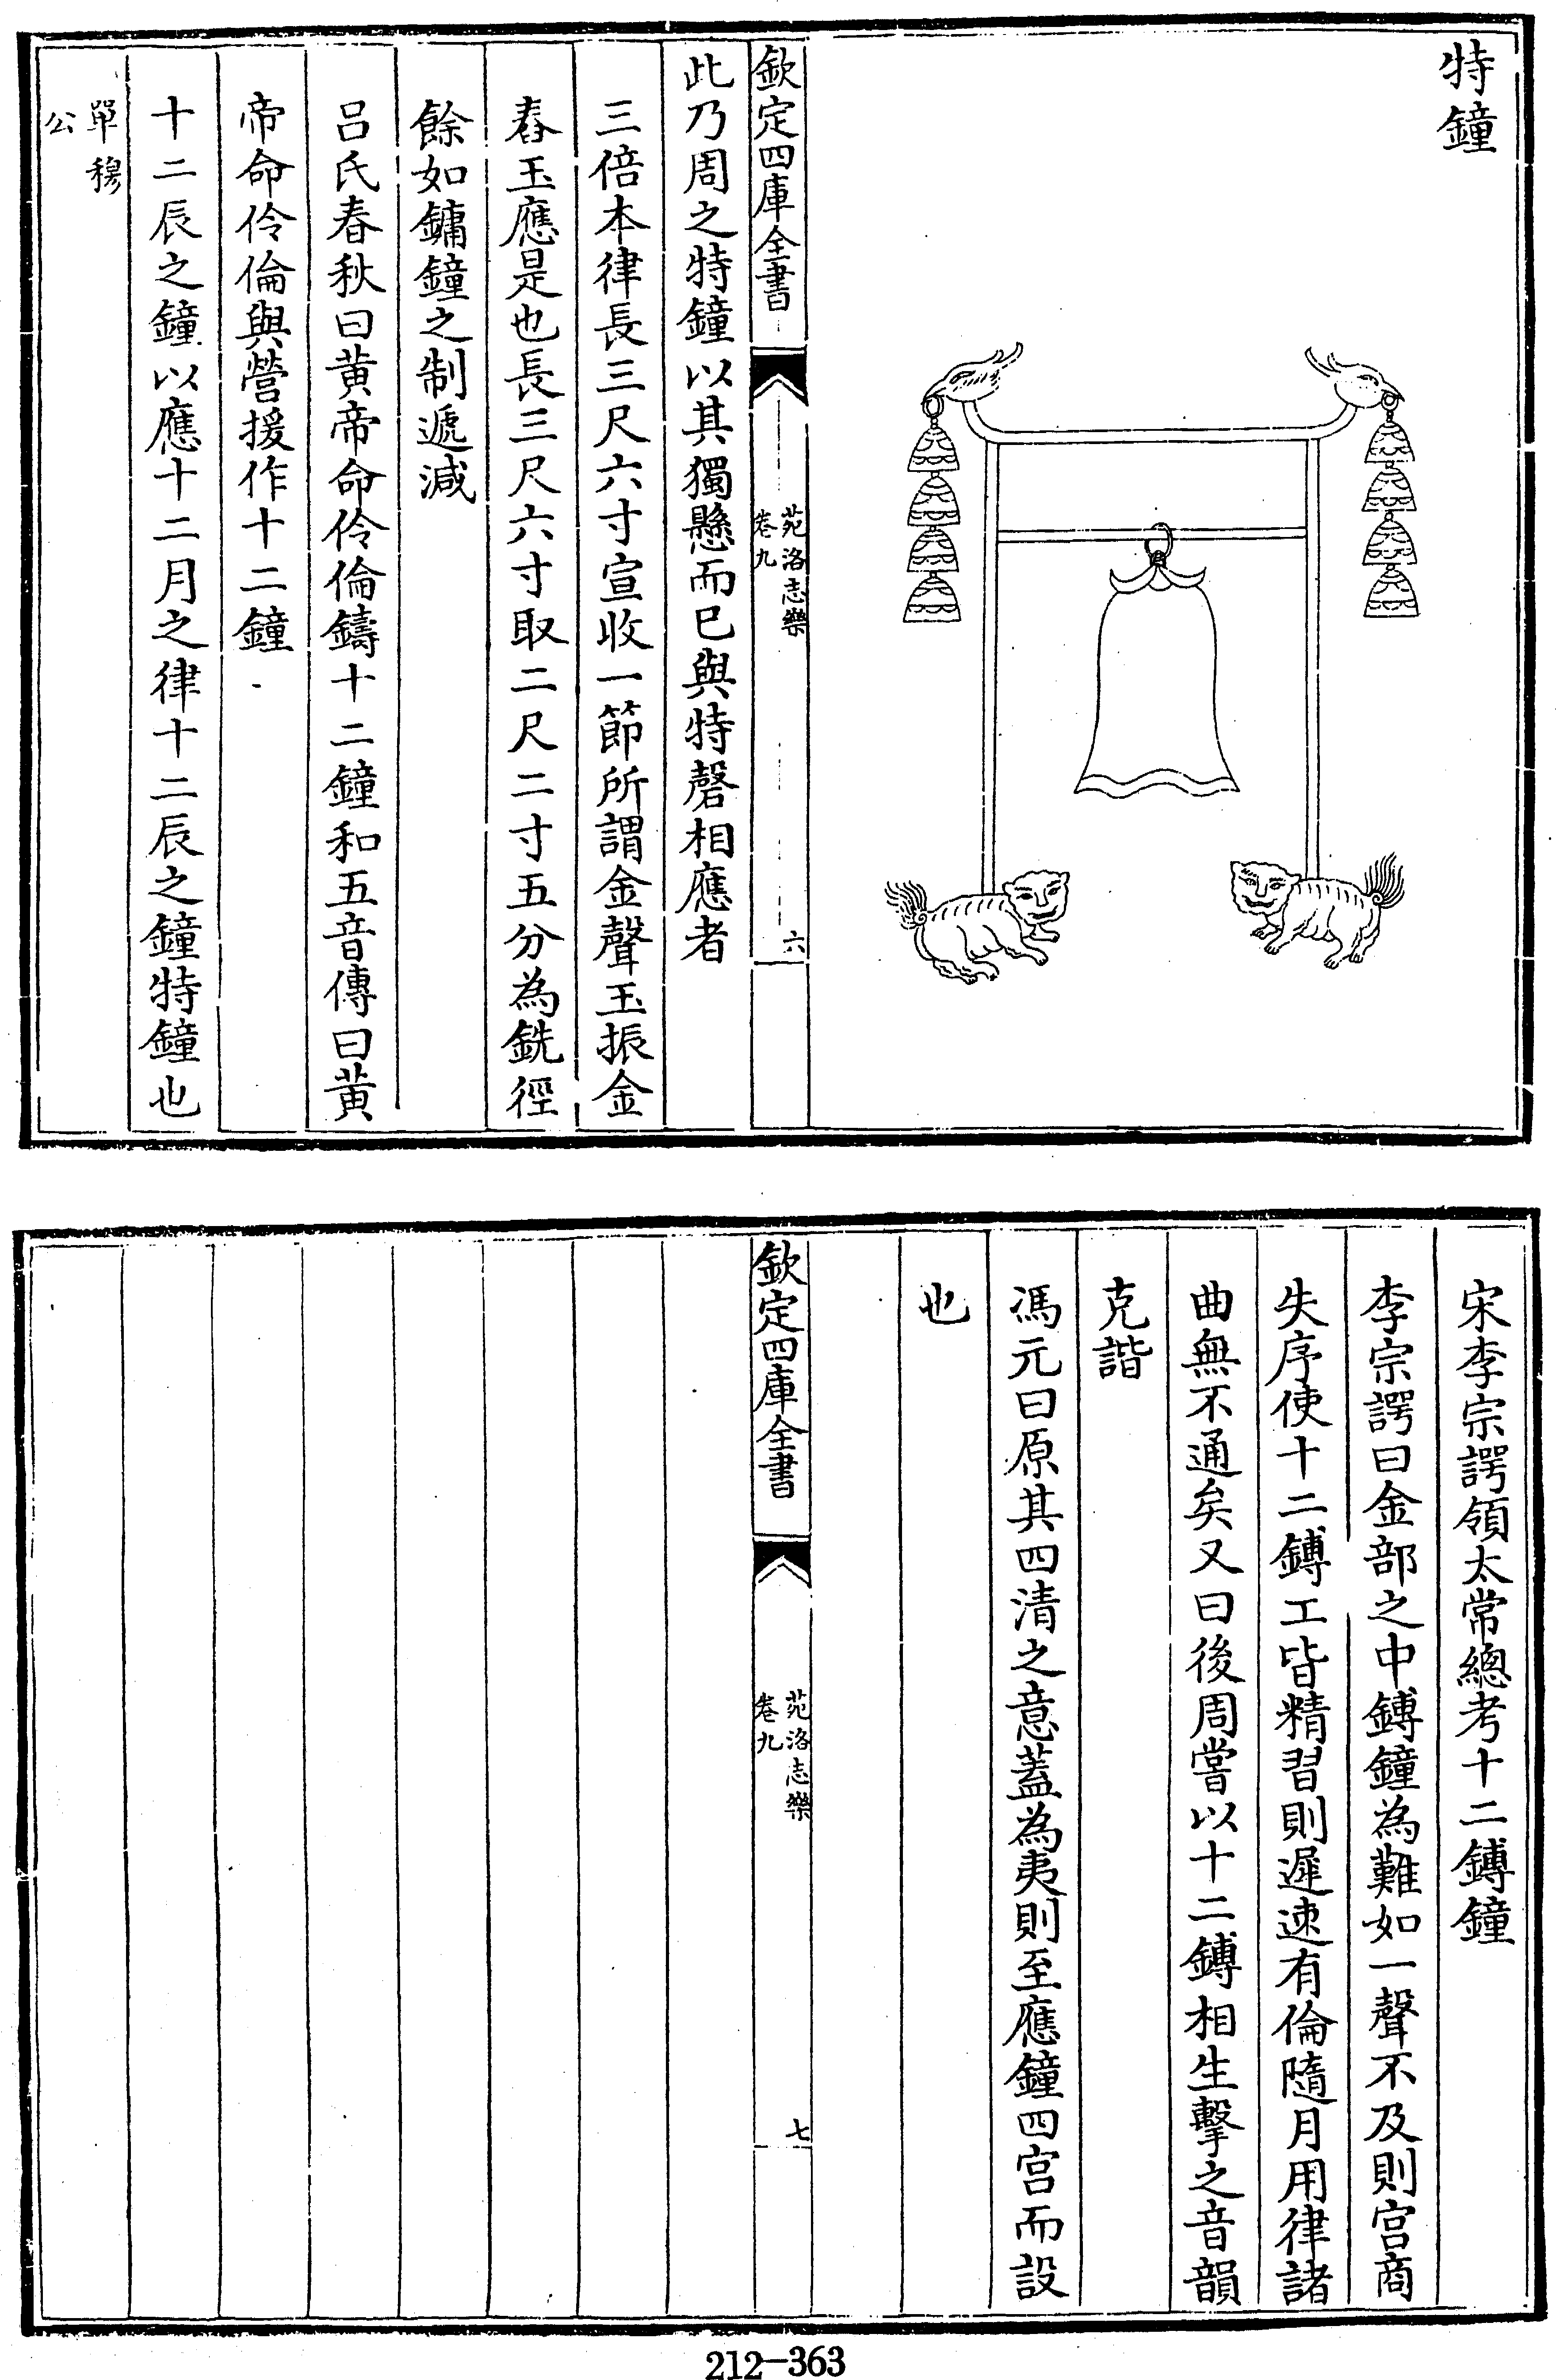 特鐘
欽定四庫全書
苑洛志樂
卷九
六
此乃周之特鐘以其獨懸而已與特磬相應者
三倍本律長三尺六寸宣收一節所謂金聲玉振金
舂玉應是也長三尺六寸取二尺二寸五分為銑徑
餘如鏞鐘之制遞減
吕氏春秋曰黄帝命伶倫鑄十二鐘和五音傳曰黄
帝命伶倫與營援作十二鐘
十二辰之鐘以應十二月之律十二辰之鐘特鐘也
單穆
公
宋李宗諤領太常總考十二鎛鐘
李宗諤曰金部之中鎛鐘為難如一聲不及則宫商
失序使十二鎛工皆精習則遲速有倫隨月用律諸
曲無不通矣又曰後周嘗以十二鎛相生擊之音韻
克諧
馮元曰原其四清之意蓋為夷則至應鐘四宫而設
也
欽定四庫全書
苑洛志樂
卷九
七
212-363